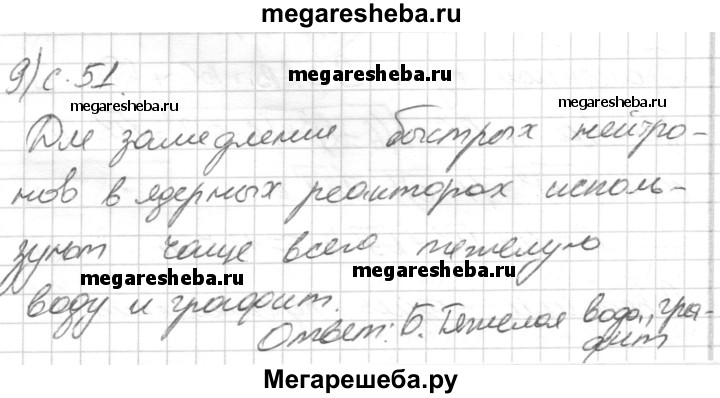 megaresheba.ru
9) с. 51.
megaresheba.ru
megaresheba.ru
megaresheba.ru
Для замедления быстрых нейтро-
нов в ядерных реакторах исполь-
зуют чаще всего тяжелую
megaresheba.ru
megaresheba.ru
воду и графит.
Ответ: Б. Тяжелая вода, гра-
фит
Мегарешеба.ру